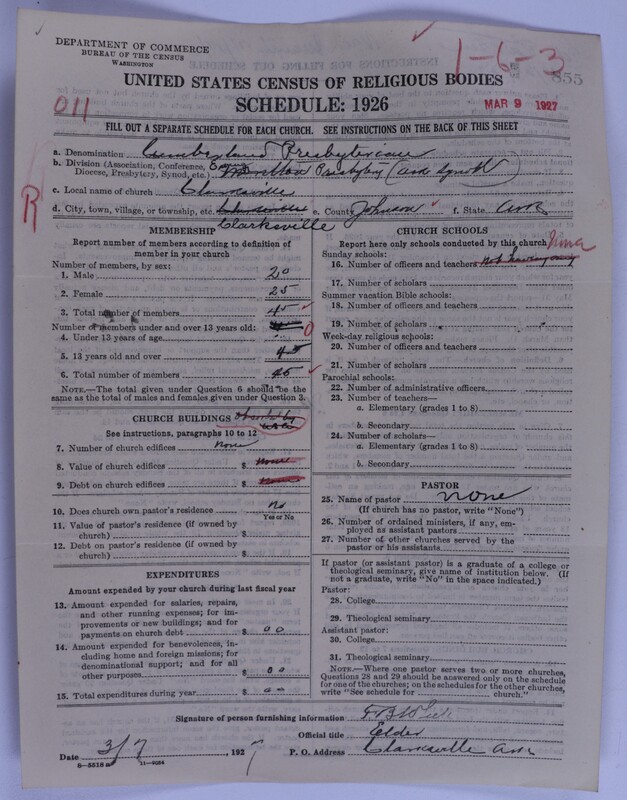 1-6-3
855
DEPARTMENT OF COMMERCE
BUREAU OF THE CENSUS
WASHINGTON
UNITED STATES CENSUS OF RELIGIOUS BODIES
SCHEDULE: 1926
011
MAR 9 1927
FILL OUT A SEPARATE SCHEDULE FOR EACH CHURCH. SEE INSTRUCTIONS ON THE BACK OF THIS SHEET
a. Denomination Cumberland Presbyterian
b. Division (Association, Conference,
Diocese, Presbytery, Synod, etc.) Presbytery (Ark Synod)
c. Local name of church Clarksville
R
d. City, town, village, or township, etc. e. County Johnson f. State Ark
Clarksville
MEMBERSHIP
Report number of members according to definition of
member in your church
Number of members, by sex:
1. Male 20
2. Female 25
3. Total number of members 45
Number of members under and over 13 years old:
4. Under 13 years of age 0
5. 13 years old and over 45
6. Total number of members 45
NOTE.—The total given under Question 6 should be the
same as the total of males and females given under Question 3.
CHURCH BUILDINGS
See instructions, paragraphs 10 to 12
7. Number of church edifices none
8. Value of church edifices $ none
9. Debt on church edifices $ none
10. Does church own pastor's residence no
Yes or No
11. Value of pastor's residence (if owned by
church) $
12. Debt on pastor's residence (if owned by
church) $
EXPENDITURES
Amount expended by your church during last fiscal year
13. Amount expended for salaries, repairs,
and other running expenses; for im-
provements or new buildings; and for
payments on church debt $ 00
14. Amount expended for benevolences, in-
cluding home and foreign missions; for
denominational support; and for all
other purposes $ 00
15. Total expenditures during year $ 00
CHURCH SCHOOLS
Report here only schools conducted by this church
Sunday schools:
16. Number of officers and teachers
17. Number of scholars
Summer vacation Bible schools:
18. Number of officers and teachers
19. Number of scholars
Week-day religious schools:
20. Number of officers and teachers
21. Number of scholars
Parochial schools:
22. Number of administrative officers
23. Number of teachers—
a. Elementary (grades 1 to 8)
b. Secondary
24. Number of scholars—
a. Elementary (grades 1 to 8)
b. Secondary
PASTOR
25. Name of pastor none
(If church has no pastor, write "None")
26. Number of ordained ministers, if any, em-
ployed as assistant pastors
27. Number of other churches served by the
pastor or his assistants
If pastor (or assistant pastor) is a graduate of a college or
theological seminary, give name of institution below. (If
not a graduate, write "No" in the space indicated.)
Pastor:
28. College
29. Theological seminary
Assistant pastor:
30. College
31. Theological seminary
NOTE.—Where one pastor serves two or more churches,
Questions 28 and 29 should be answered only on the schedule
for one of the churches; on the schedules for the other churches,
write "See schedule for church."
Signature of person furnishing information
Official title Elder
Date 3/7, 1927 P. O. Address Clarksville Ark
8-5518 a 11-9354